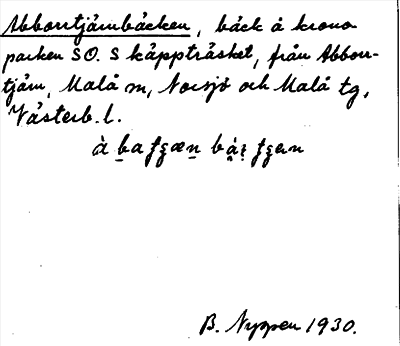 Abborrtjärnbäcken, bäck å krono
parken SO. S käppträsket, från Abborr-
tjärn, Malå sn, Norsjö och Malå tg,
Västerb. l.
B. Nyppen 1930.